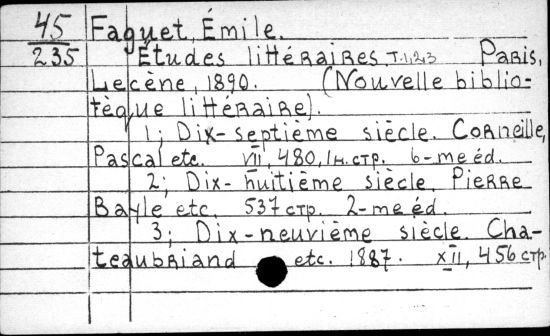 45
235
Faguet, Émile.
Études littéraires T.1,2,3 Paris,
Lecène, 1890. (Nouvelle biblio-
tèque littéraire).
1; Dix-septième siècle. Corneille,
Pascal etc. VII, 480, 1н. стр. 6-me éd.
2; Dix-huitième siècle. Pierre
Bayle etc. 537 стр. 2-me éd.
3; Dix-neuvième siècle. Cha-
teaubriand etc. 1887. XII, 456 стр.